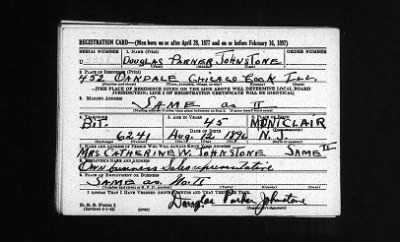 REGISTRATION CARD—(Men born on or after April 28, 1877 and on or before February 16, 1897)
SERIAL NUMBER 1. NAME (Print) ORDER NUMBER
U DOUGLAS PARKER JOHNSTONE
2. PLACE OF RESIDENCE (Print)
452 OAKDALE CHICAGO COOK ILL.
[THE PLACE OF RESIDENCE GIVEN ON THE LINE ABOVE WILL DETERMINE LOCAL BOARD
JURISDICTION; LINE 2 OF REGISTRATION CERTIFICATE WILL BE IDENTICAL]
3. MAILING ADDRESS
SAME as II
4. TELEPHONE 5. AGE IN YEARS 6. PLACE OF BIRTH
BIT. 45 MONTCLAIR
DATE OF BIRTH
6241 Aug. 12 1896 N. J.
7. NAME AND ADDRESS OF PERSON WHO WILL ALWAYS KNOW YOUR ADDRESS
MRS CATHERINE W. JOHNSTONE SAME II
8. EMPLOYER'S NAME AND ADDRESS
Own business Sales representative
9. PLACE OF EMPLOYMENT OR BUSINESS
SAME as No. II
I AFFIRM THAT I HAVE VERIFIED ABOVE
D. S. S. Form 1
Douglas Parker Johnstone